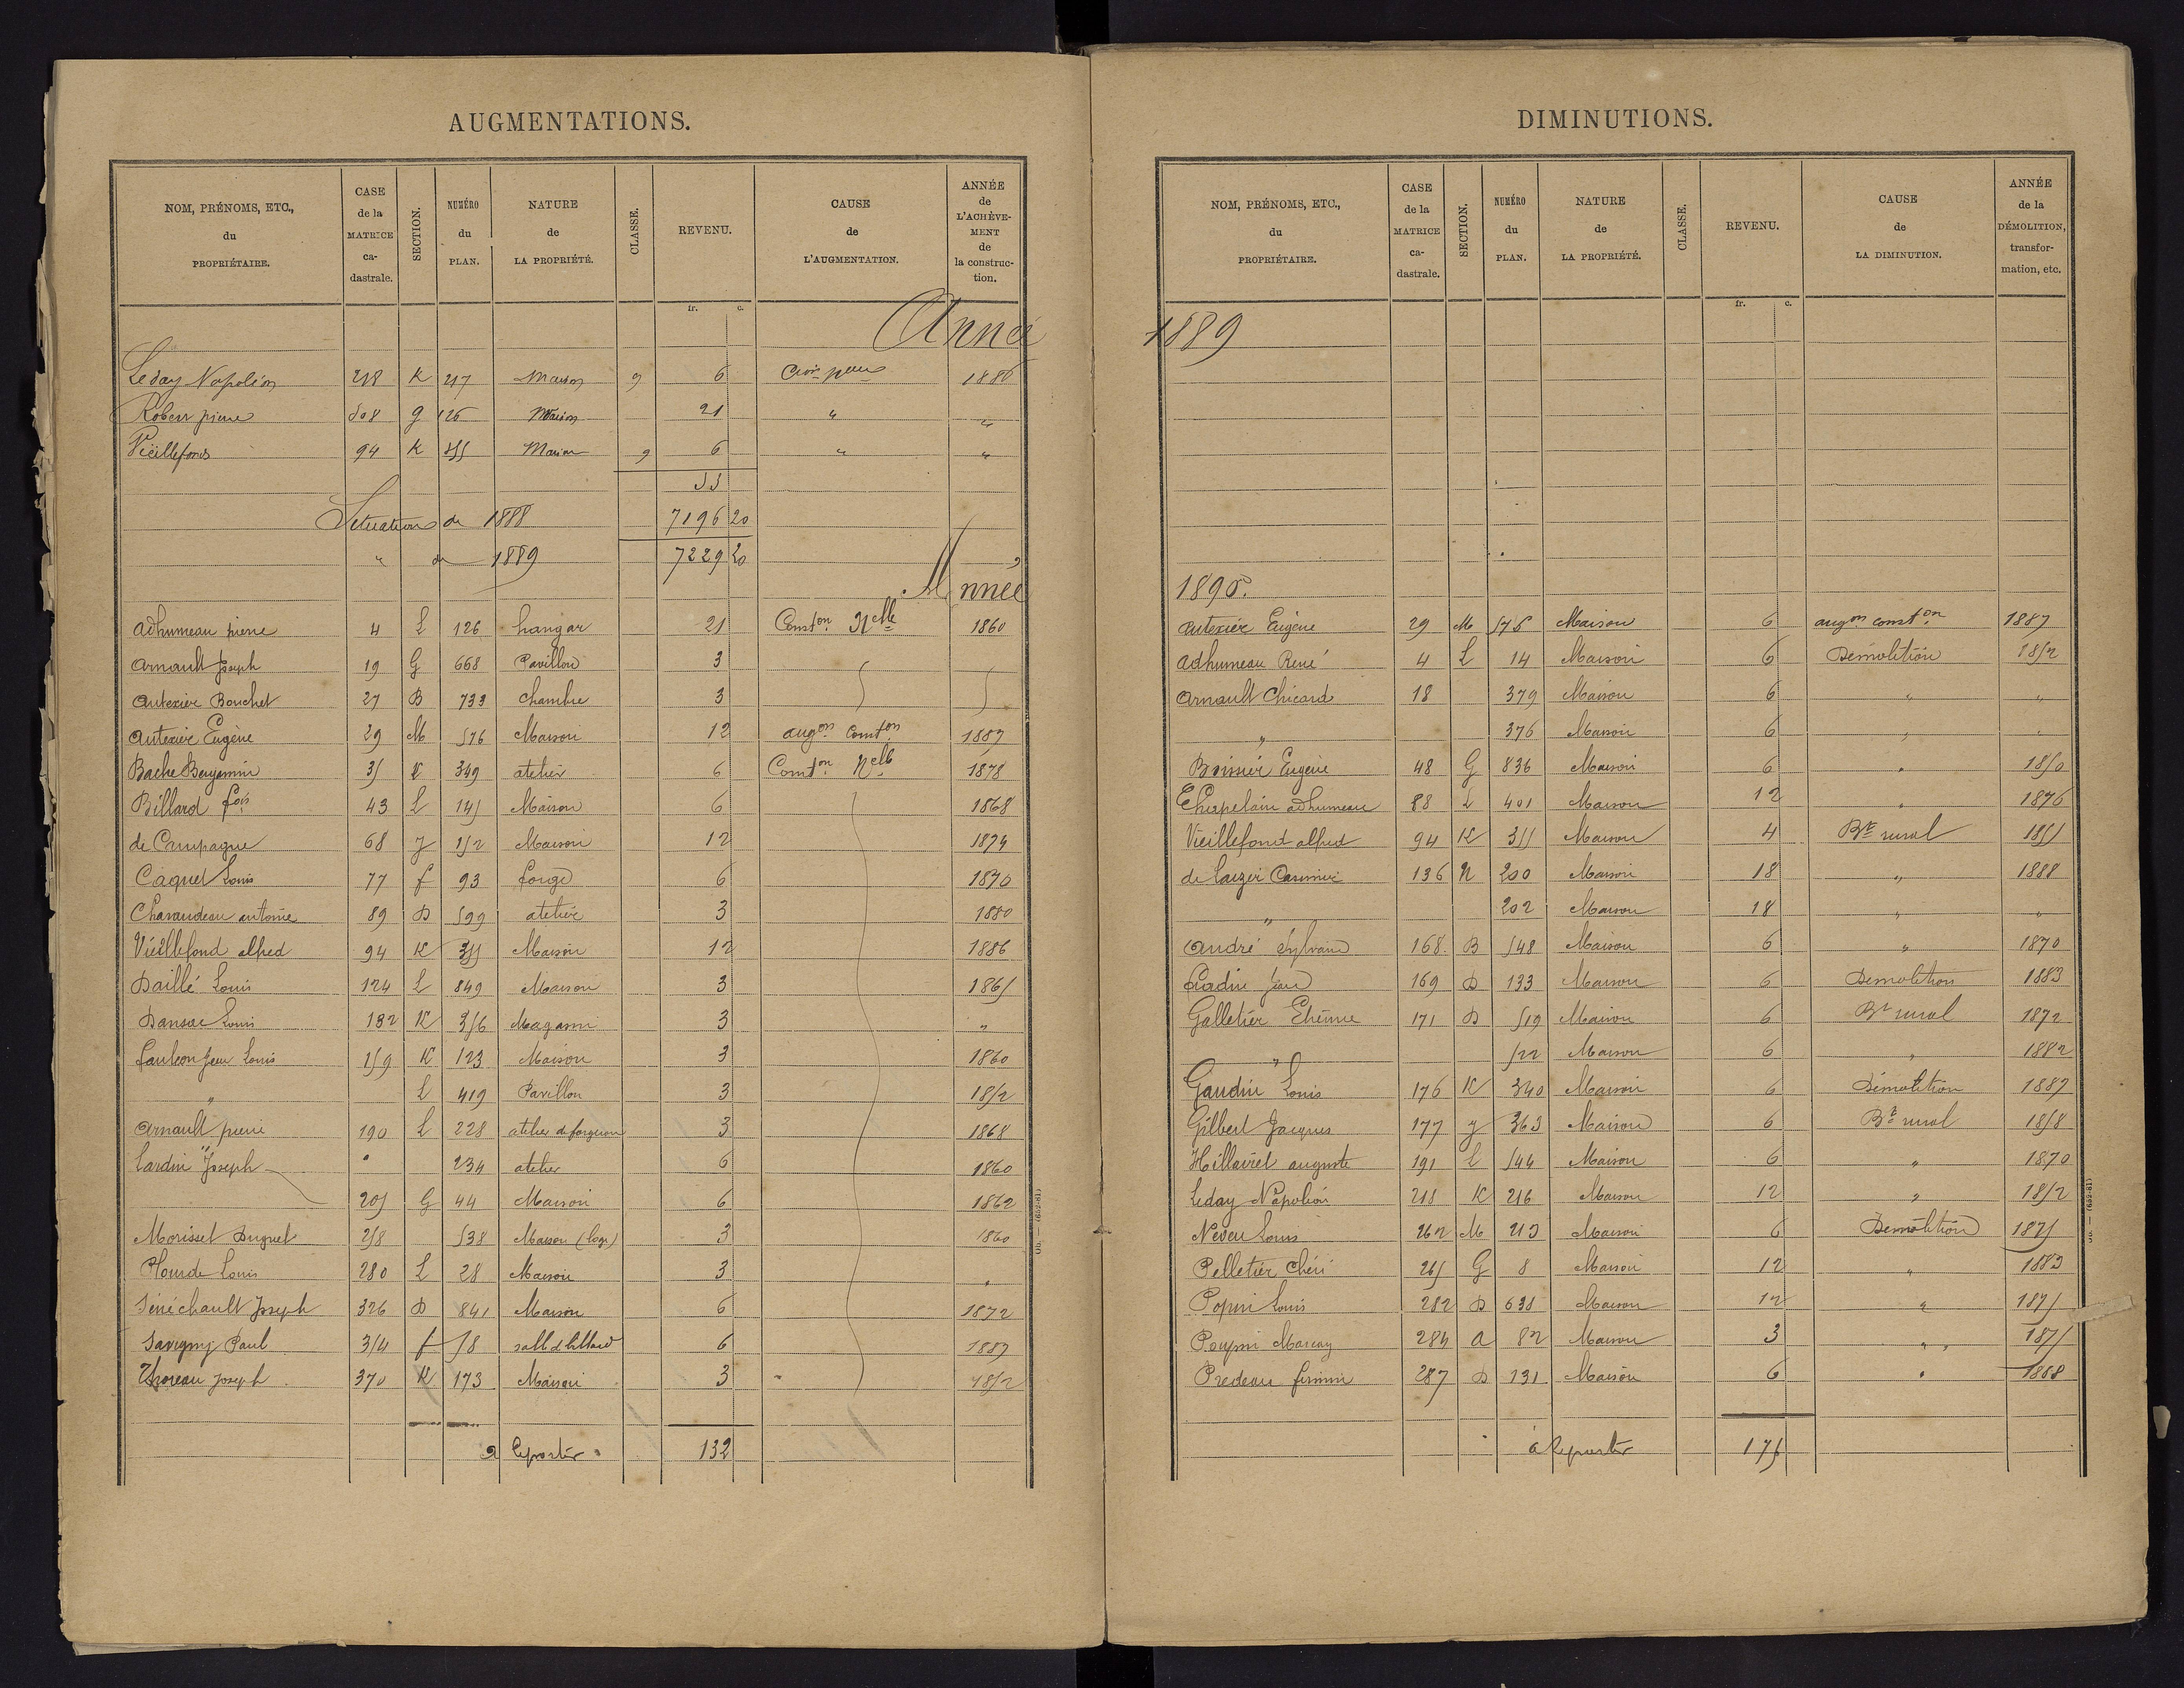 AUGMENTATIONS.
NOM, PRÉNOMS, ETC., du PROPRIÉTAIRE. CASE de la MATRICE ca-dastrale. SECTION. NUMÉRO du PLAN. NATURE de LA PROPRIÉTÉ. CLASSE. REVENU. CAUSE de L'AUGMENTATION. ANNÉE de L'ACHÈVE-MENT de la construc-tion.
fr. c.
Année
Leday Napoléon 218 K 217 Maison 9 6 1886
Robert pierre 308 g 126 Maison 21 " "
Vieillefonds 94 K 355 Maison 9 6 " "
33
Situation de 1888 7196 20
" de 1889 7229 20
Année
adhumeau pierre 4 L 126 hangar 21 Conston Nelle 1860
arnault Joseph 19 G 668 Pavillon 3
autexier Bouchet 27 B 733 Chambre 3
autexier Eugène 29 M 576 Maison 12 augon Conston 1887
Bache Benjamin 35 K 349 atelier 6 Conston Nelle 1878
Billard fois 43 L 145 Maison 6 1868
de Campagne 68 J 152 Maison 12 1874
Caquet Louis 77 f 93 forge 6 1870
Charaudeau antoine 89 D 599 atelier 3 1880
Vieillefond alfred 94 K 355 Maison 12 1886
Daillé Louis 124 L 849 Maison 3 1865
Dansac Louis 132 K 356 Magasin 3 "
fauleon Jean Louis 159 K 123 Maison 3 1860
" L 419 Pavillon 3 1852
arnault pierre 190 L 228 atelier de forgeron 3 1868
Lardin Joseph " 234 atelier 6 1860
205 G 44 Maison 6 1862
Morisset Duguet 258 538 Maison (loge) 3 1860
Plourde Louis 280 L 28 Maison 3 "
Sénéchault Joseph 326 D 841 Maison 6 1872
Savigny Paul 314 f 58 salle d billard 6 1887
Thoreau Joseph 370 K 173 Maison 3 " 1852
a Reporter 132
(652-81)
DIMINUTIONS.
NOM, PRÉNOMS, ETC., du PROPRIÉTAIRE. CASE de la MATRICE ca-dastrale. SECTION. NUMÉRO du PLAN. NATURE de LA PROPRIÉTÉ. CLASSE. REVENU. CAUSE de LA DIMINUTION. ANNÉE de la DÉMOLITION, transfor-mation, etc.
fr. c.
1889
1890.
autexier Eugène 29 M 576 Maison 6 augon conston 1887
adhumeau René 4 L 14 Maison 6 Demolition 1852
arnault Chicard 18 379 Maison 6 " "
" 376 Maison 6 " "
Boissier Eugène 48 G 836 Maison 6 " 1850
Chapelain adhumeau 88 L 401 Maison 12 " 1876
Vieillefond alfred 94 K 355 Maison 4 Bt rural 1855
de Lauzer Casimir 136 N 200 Maison 18 " 1888
" 202 Maison 18 " "
André Sylvain 168 B 548 Maison 6 " 1870
fradin Jean 169 D 133 Maison 6 Demolition 1883
Galletier Etienne 171 D 519 Maison 6 Bt rural 1872
" 522 Maison 6 " 1882
Gaudin Louis 176 K 340 Maison 6 Démolition 1887
Gilbert Jacques 177 J 363 Maison 6 Bt rural 1858
Hillairet auguste 191 L 544 Maison 6 " 1870
Leday Napoléon 218 K 216 Maison 12 " 1852
Neveu Louis 262 M 213 Maison 6 Demolition 1875
Pelletier Chéri 265 G 8 Maison 12 " 1883
Popin Louis 282 D 638 Maison 12 " 1875
284 a 82 Maison 3 " 1875
Predeau firmin 287 D 131 Maison 6 " 1888
à Reporter 175
(652-81)